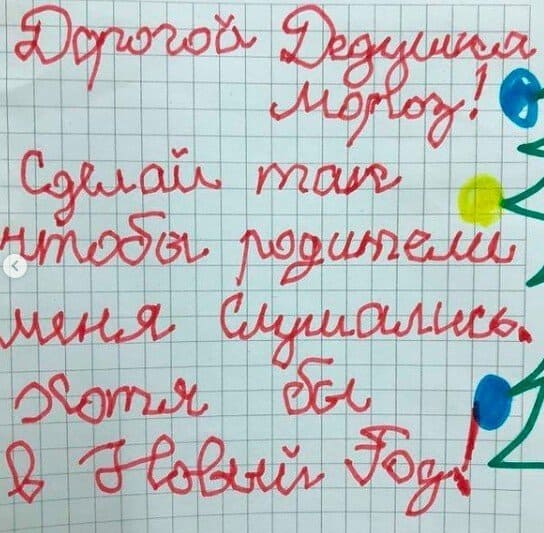 Дорогой Дедушка
Мороз!
Сделай так
чтобы родители
меня Слушались.
Хотя бы
в Новый Год!